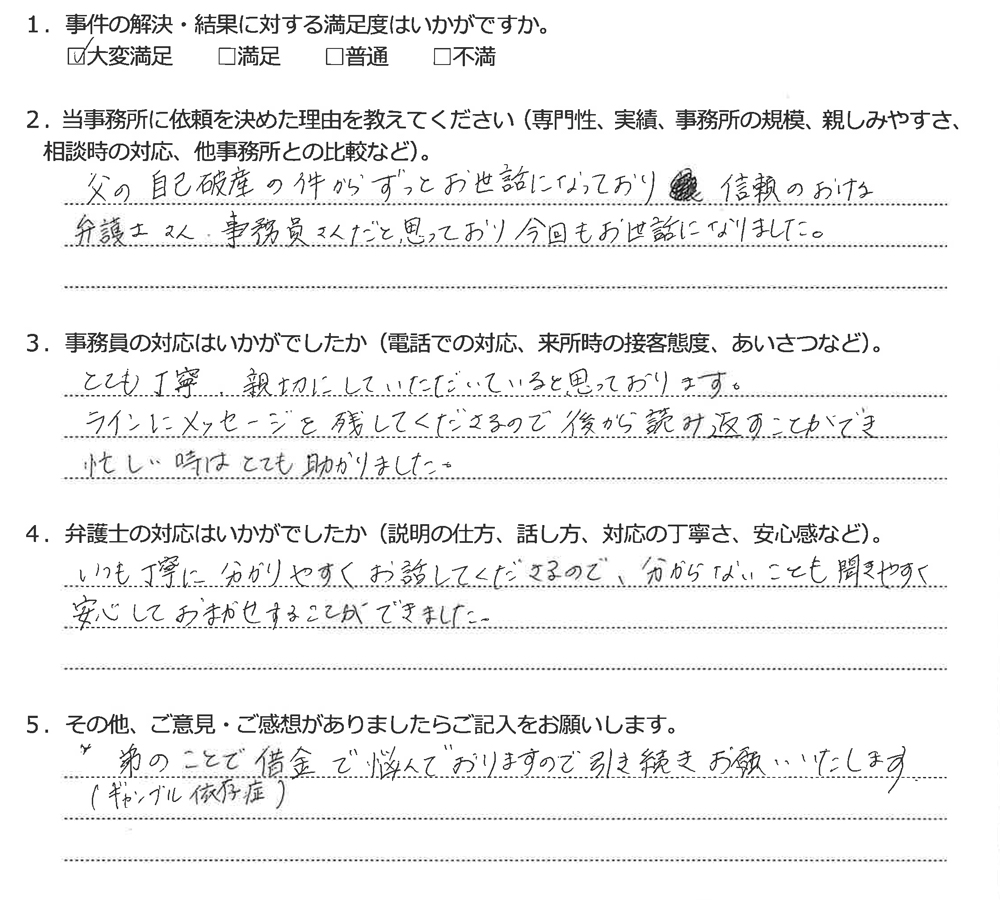 1．事件の解決・結果に対する満足度はいかがですか。
☑大変満足　□満足　□普通　□不満
2．当事務所に依頼を決めた理由を教えてください（専門性、実績、事務所の規模、親しみやすさ、
相談時の対応、他事務所との比較など）。
父の自己破産の件からずっとお世話になっており 信頼のおける
弁護士さん、事務員さんだと思っており今回もお世話になりました。
3．事務員の対応はいかがでしたか（電話での対応、来所時の接客態度、あいさつなど）。
とても丁寧、親切にしていただいていると思っております。
ラインにメッセージを残してくださるので後から読み返すことができ
忙しい時はとても助かりました。
4．弁護士の対応はいかがでしたか（説明の仕方、話し方、対応の丁寧さ、安心感など）。
いつも丁寧に分かりやすくお話してくださるので、分からないことも聞きやすく
安心しておまかせすることができました。
5．その他、ご意見・ご感想がありましたらご記入をお願いします。
弟のことで借金で悩んでおりますので引き続きお願いいたします
（ギャンブル依存症）